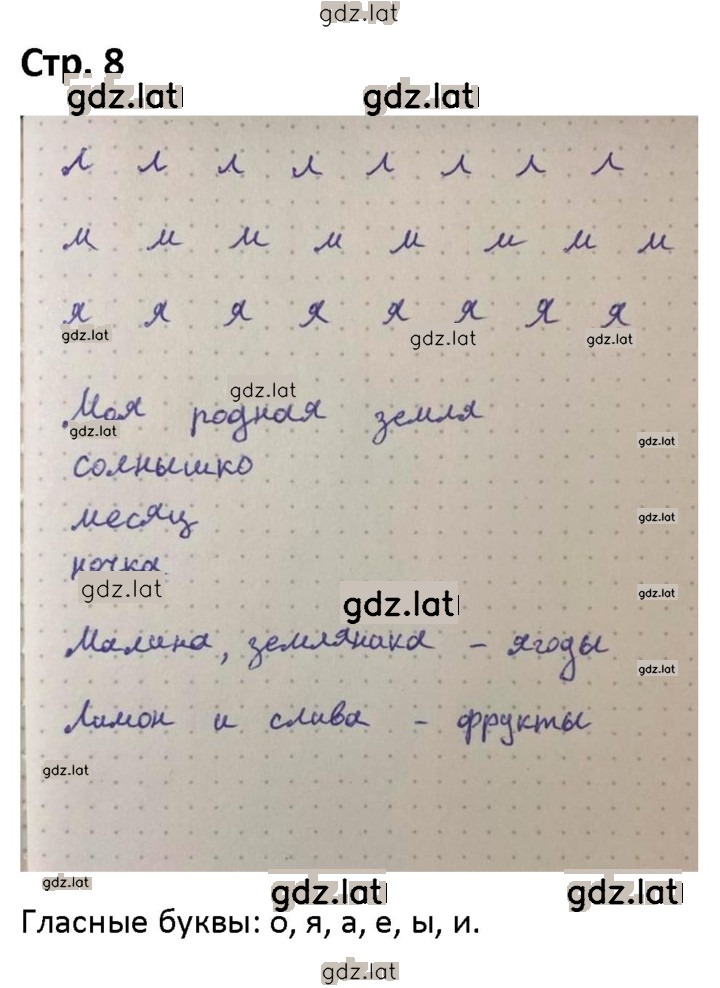 gdz.lat
Стр. 8
gdz.lat gdz.lat
л л л л л л л л
м м м м м м м м
я я я я я я я я
gdz.lat gdz.lat gdz.lat
gdz.lat
Моя родная земля
gdz.lat gdz.lat
солнышко
месяц
gdz.lat
ночка
gdz.lat gdz.lat
gdz.lat
Малина, земляника - ягоды
gdz.lat
Лимон и слива - фрукты
gdz.lat
gdz.lat gdz.lat gdz.lat
Гласные буквы: о, я, а, е, ы, и.
gdz.lat